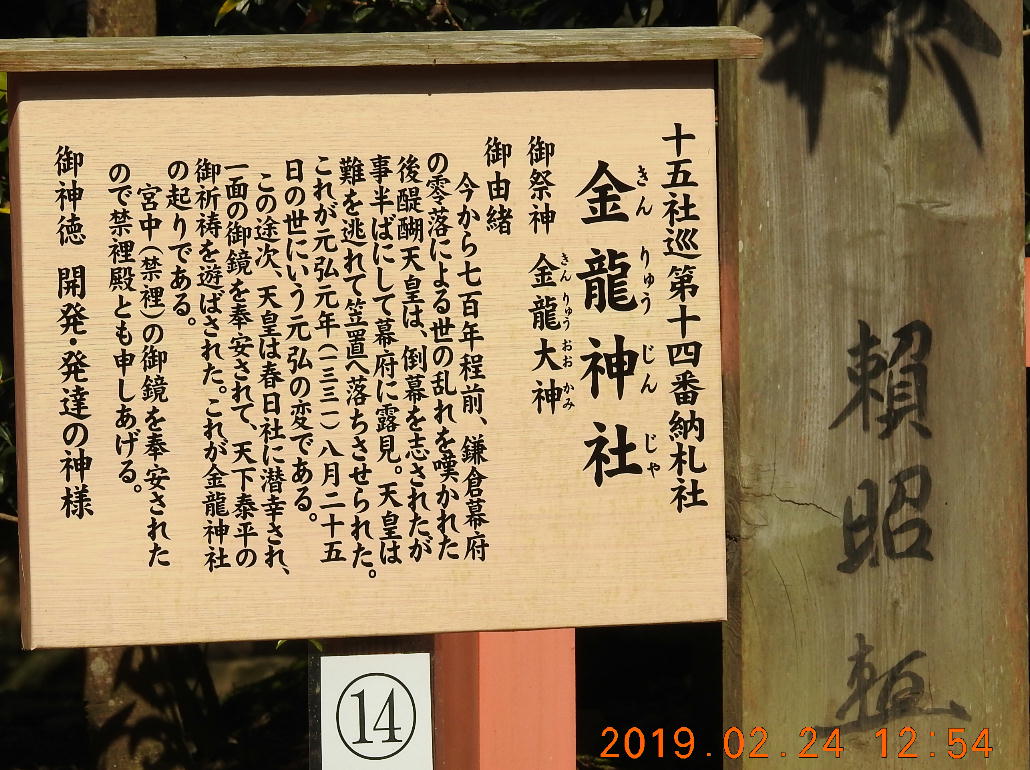 十五社巡第十四番納札社
金龍神社
きん りゅう じん じゃ
御祭神 金龍大神
きん りゅう おお かみ
御由緒
今から七百年程前、鎌倉幕府
の零落による世の乱れを嘆かれた
後醍醐天皇は、倒幕を志されたが
事半ばにして幕府に露見。天皇は
難を逃れて笠置へ落ちさせられた。
これが元弘元年(一三三一)八月二十五
日の世にいう元弘の変である。
この途次、天皇は春日社に潜幸され、
一面の御鏡を奉安されて、天下泰平の
御祈祷を遊ばされた。これが金龍神社
の起りである。
宮中(禁裡)の御鏡を奉安された
ので禁裡殿とも申しあげる。
御神徳 開発・発達の神様
14
賴昭
2019.02.24 12:54